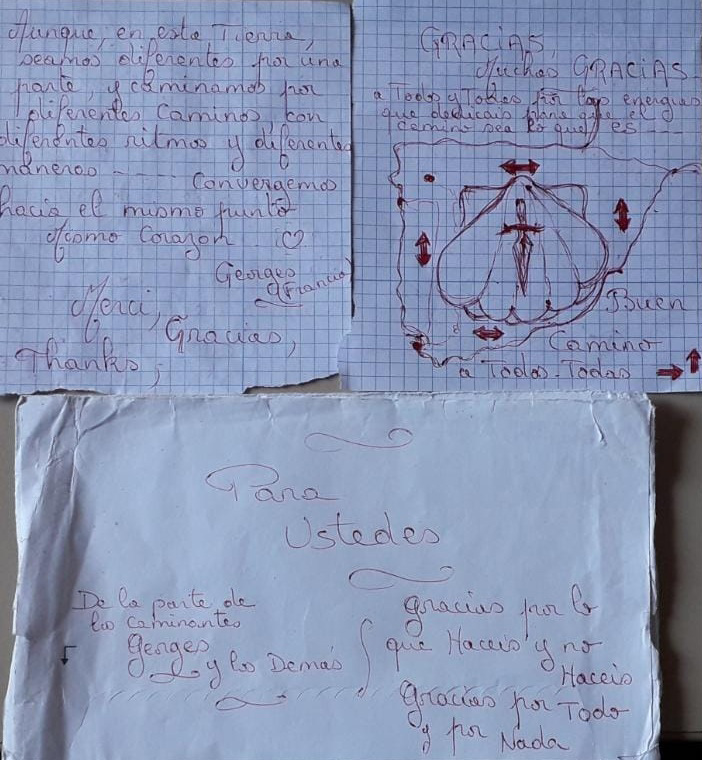 Aunque, en esta Tierra,
seamos diferentes por una
parte, y caminamos por
diferentes caminos, con
diferentes ritmos y diferentes
maneras ---- Convergemos
hacia el mismo punto
como Corazon
Georges
(Francia)
Merci,
Gracias,
Thanks,
GRACIAS,
Muchas GRACIAS
a Todos y Todas por las energias
que dedicais para que el
camino sea lo que es ----
Buen
Camino
a Todos-Todas
Para
Ustedes
De la parte de
los caminantes
Georges
y los Demás
gracias por lo
que Haceis y no
Haceis
gracias por Todo
y por Nada